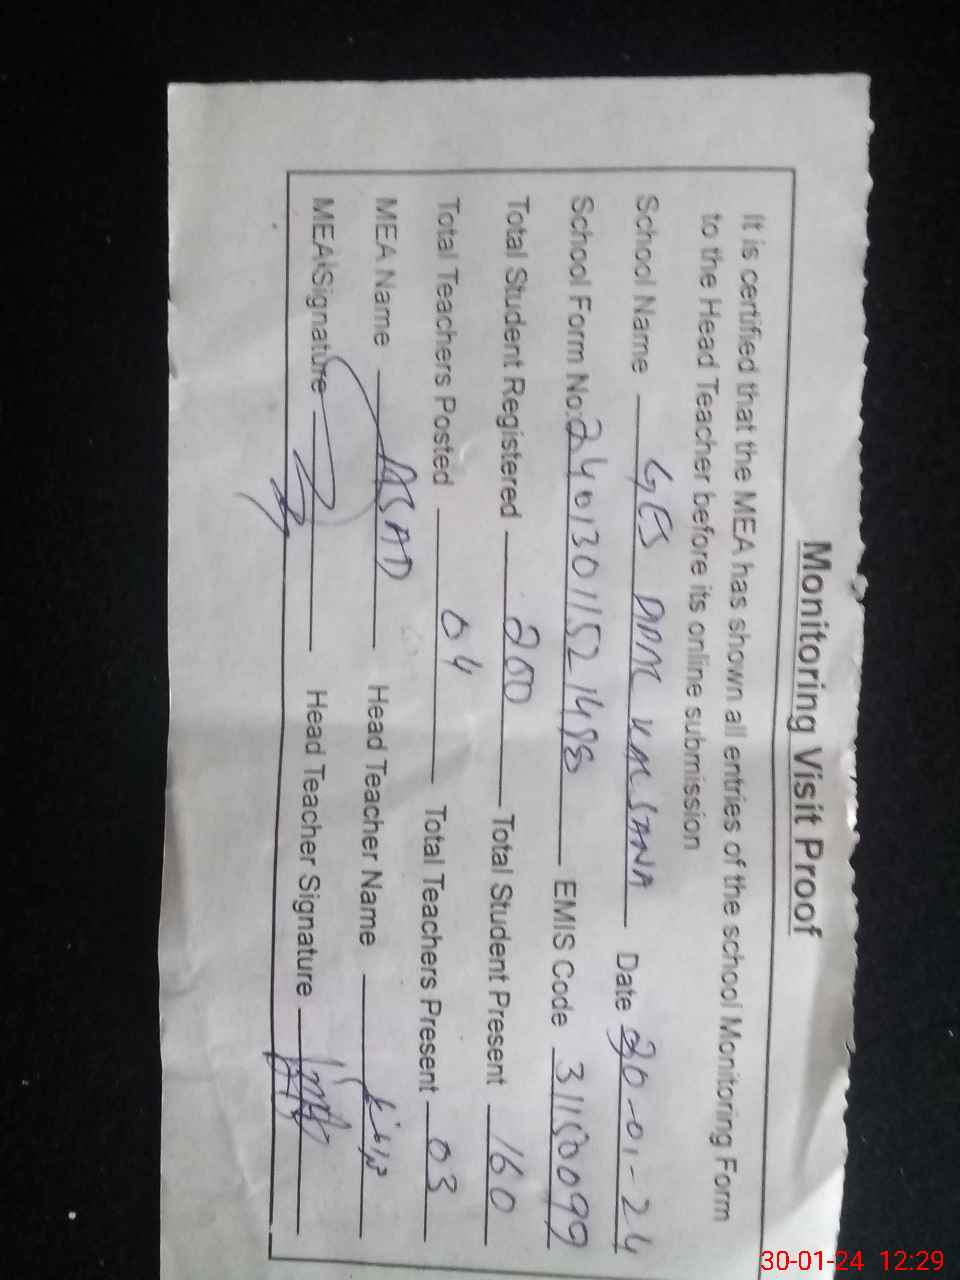 Monitoring Visit Proof
It is certified that the MEA has shown all entries of the school Monitoring Form
to the Head Teacher before its online submission
School Name GES Date 30-01-24
School Form No: 24013011521498 EMIS Code 31150099
Total Student Registered 200 Total Student Present 160
Total Teachers Posted 04 Total Teachers Present 03
MEA Name ASAD Head Teacher Name
MEA\Signature Head Teacher Signature
30-01-24 12:29